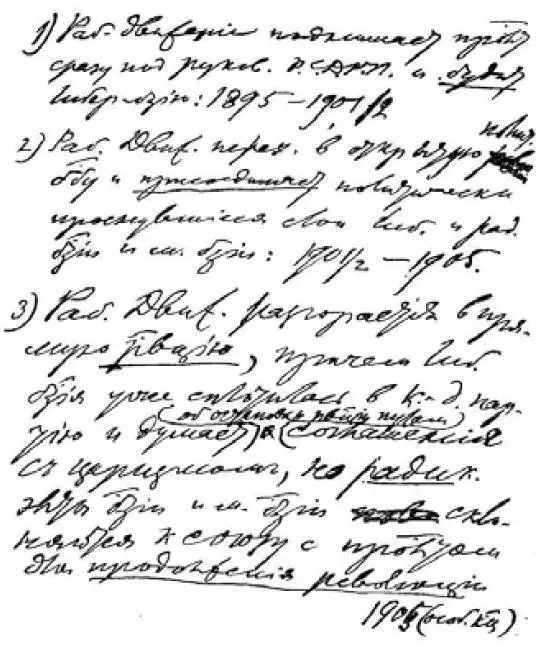 1) Раб. движение поднимает прол-т
сразу под руков. Р.С.Д.Р.П. и будит
либер. б-зію: 1895–1901/2
2) Раб. движ. перех. в открытую полит.
б-бу и присоединяет политически
проснувшіеся слои либ. и рад.
б-зіи и м. б-зіи: 1901/2–1905.
3) Раб. движ. разгорается в пря-
мую р-волюцію, причем либ.
б-зія уже сплотилась в к.-д. пар-
тію и думает (об остановке рев-ціи путем)
соглашения
с царизмом, но радик.
эл-ты б-зіи и м. б-зіи скло-
няются к союзу с прол-том
для продолжения революціи
1905 (особ. кц.)